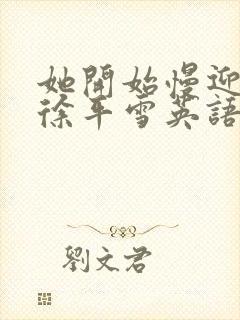 她開始慢迎
徐平雪英語
劉文君